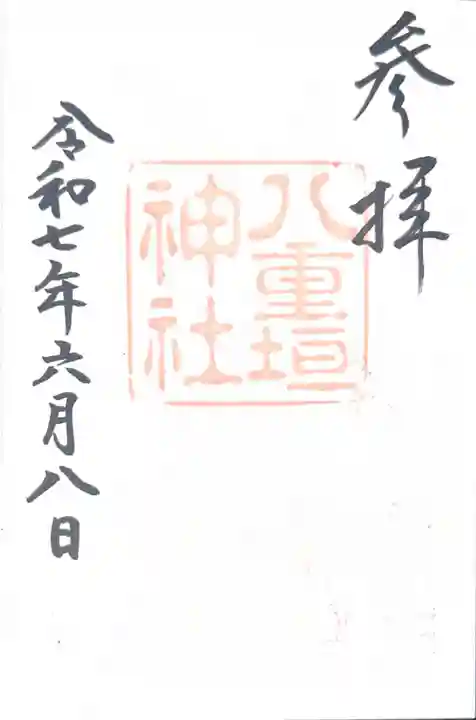 参拝
八重垣
神社
令和七年六月八日